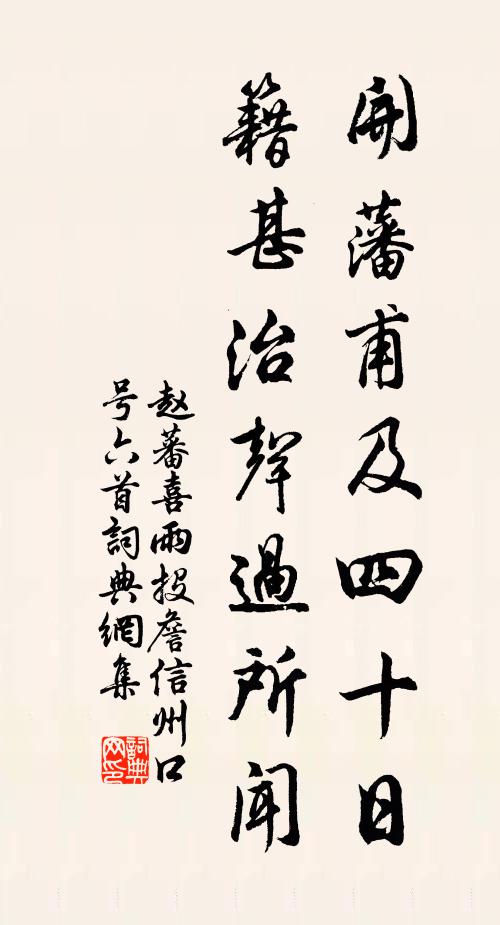 開藩甫及四十日
籍甚治聲過所聞
赵蕃喜雨投詹信州口
号六首詞典網集
詞典
网印